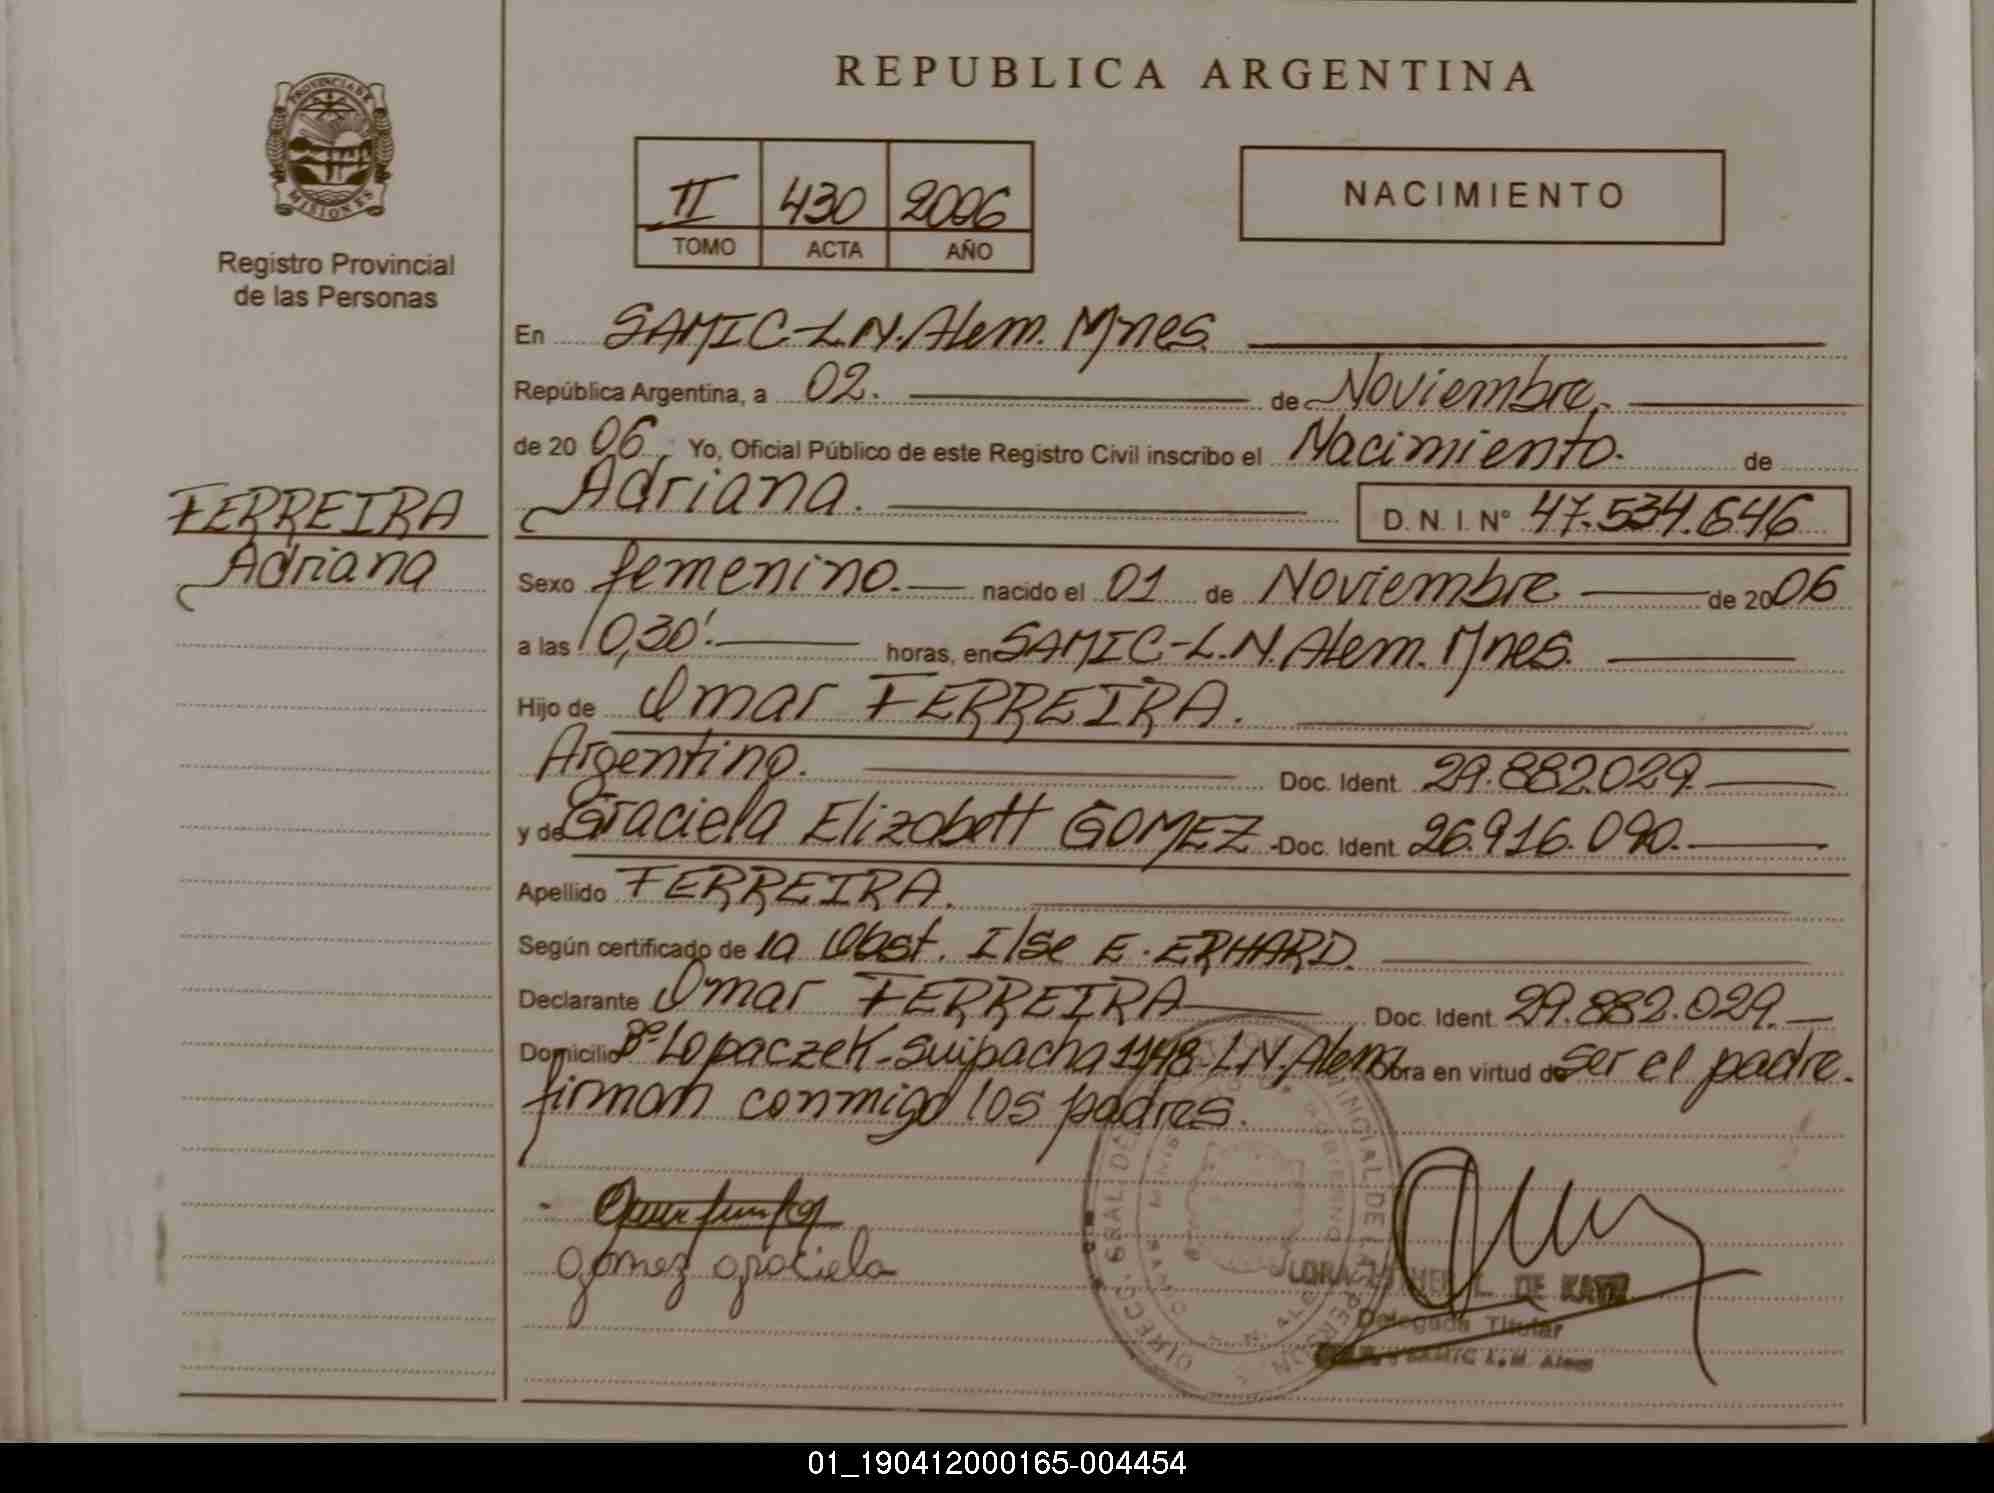 REPUBLICA ARGENTINA
PROVINCIA DE
MISIONES
Registro Provincial
de las Personas
II 430 2006
TOMO ACTA AÑO
NACIMIENTO
En SAMIC-L.N.Alem. Mnes.
República Argentina, a 02. de Noviembre.
de 20 06, Yo, Oficial Público de este Registro Civil inscribo el Nacimiento. de
Adriana. D. N. I. Nº 47.534.646
FERREIRA
Adriana
Sexo femenino. nacido el 01 de Noviembre de 2006
a las 10,30'. horas, en SAMIC-L.N. Alem. Mnes.
Hijo de Omar FERREIRA.
Argentino. Doc. Ident. 29.882.029.
y de Graciela Elizabett GOMEZ - Doc. Ident. 26.916.090.
Apellido FERREIRA.
Según certificado de la Obst. Ilse E. ERHARD.
Declarante Omar FERREIRA Doc. Ident. 29.882.029.
Domicilio Bº Lopaczek-Suipacha 1148-L.N. Alem Obra en virtud de ser el padre.
firman conmigo los padres.
gomez graciela
DE KATZ
Delegada Titular
SAMIC L.N. Alem
01_190412000165-004454